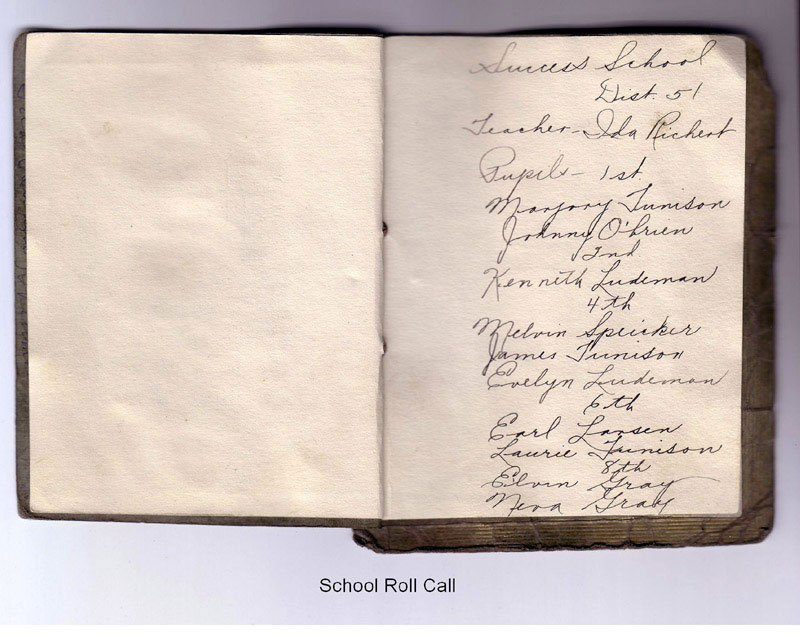 Success School
Dist. 51
Teacher - Ida Richert
Pupils - 1st
Marjory Tunison
Johnny O'brien
2nd
Kenneth Ludeman
4th
Melvin Speicker
James Tunison
Evelyn Ludeman
6th
Earl Larsen
Laurie Tunison
8th
Elvin Gray
Neva Gray
School Roll Call